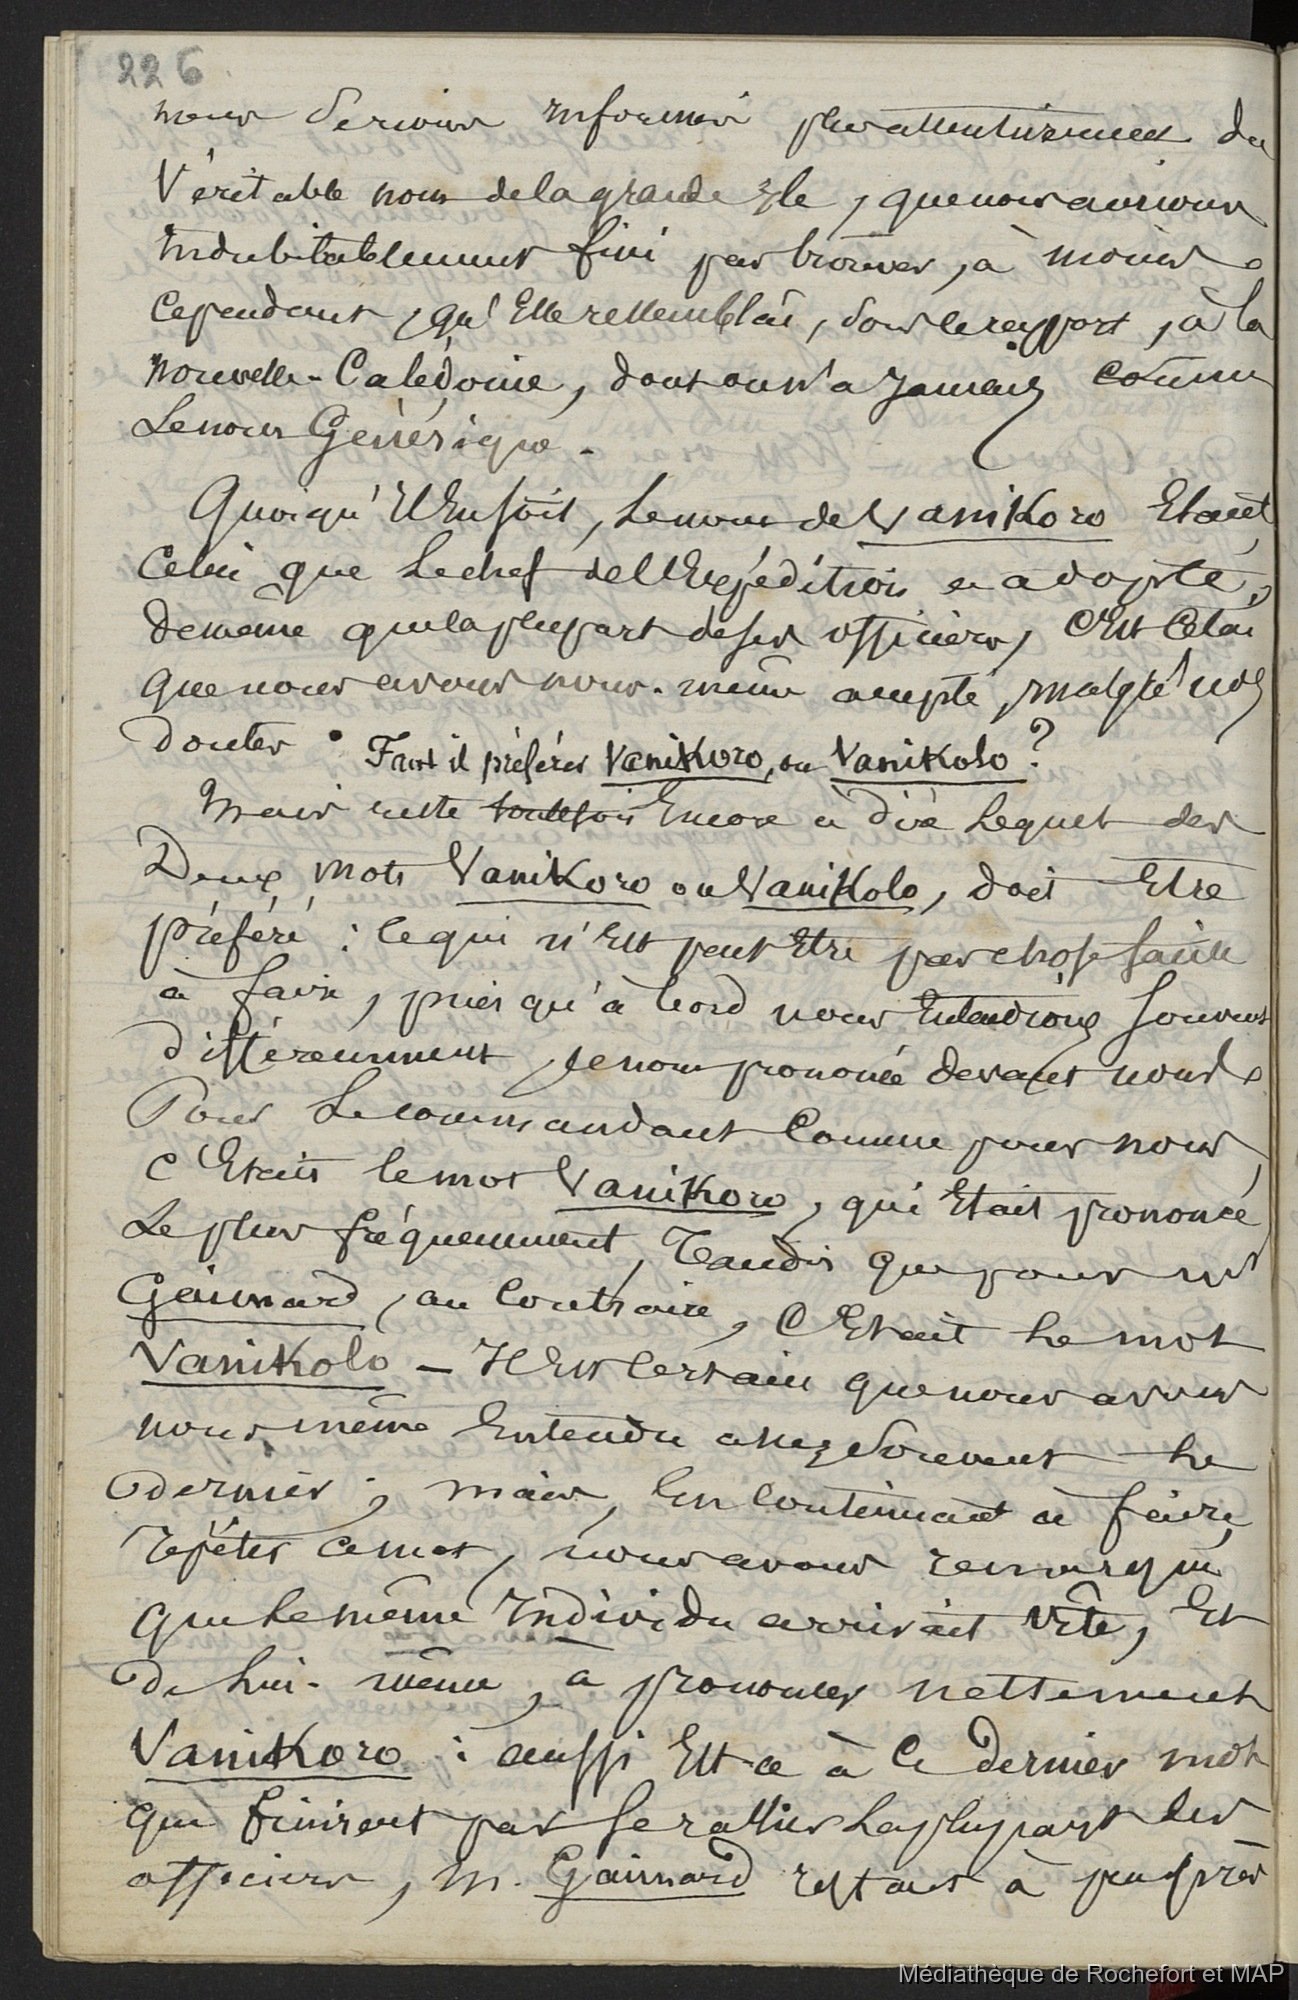 226
nous serions informés plus attentivement du
Véritable nom de la grande Ile, que nous aurions
Indubitablement fini par trouver, à moins
Cependant, qu'Elle ressemblât, sous le rapport, à la
Nouvelle-Calédonie, dont on n'a Jamais connu
Le nom Générique.
Quoiqu'Il En soit, Le nom de Vanikoro Etant
Celui que Le chef de l'Expédition a adopté,
de même que la plupart de ses officiers, C'Est Celui
que nous avons nous-même accepté, malgré nos
doutes. Faut il préférer Vanikoro, ou Vanikolo?
Mais reste toutefois Encore à dire Lequel des
Deux mots Vanikoro ou Vanikolo, doit Etre
préféré : ce qui n'Est peut Etre pas chose facile
à faire, puisqu'à bord nous Entendions souvent
différemment, le nom prononcé devant nous.
Pour Le commandant Comme pour nous,
C'Etait le mot Vanikoro, qui Etait prononcé
Le plus fréquemment, Tandis que pour Mr
Gaimard, au Contraire, C'Etait Le mot
Vanikolo – Il Est Certain que nous avons
nous même Entendu assez souvent Le
dernier ; mais, En Continuant à faire
répéter ce mot, nous avons remarqué
que Le même Individu arrivait vîte, Et
de Lui-même, à prononcer nettement
Vanikoro : aussi Est-ce à Ce dernier mot
que finirent par se rallier La plupart des
officiers, M. Gaimard restant à peu près
Médiathèque de Rochefort et MAP